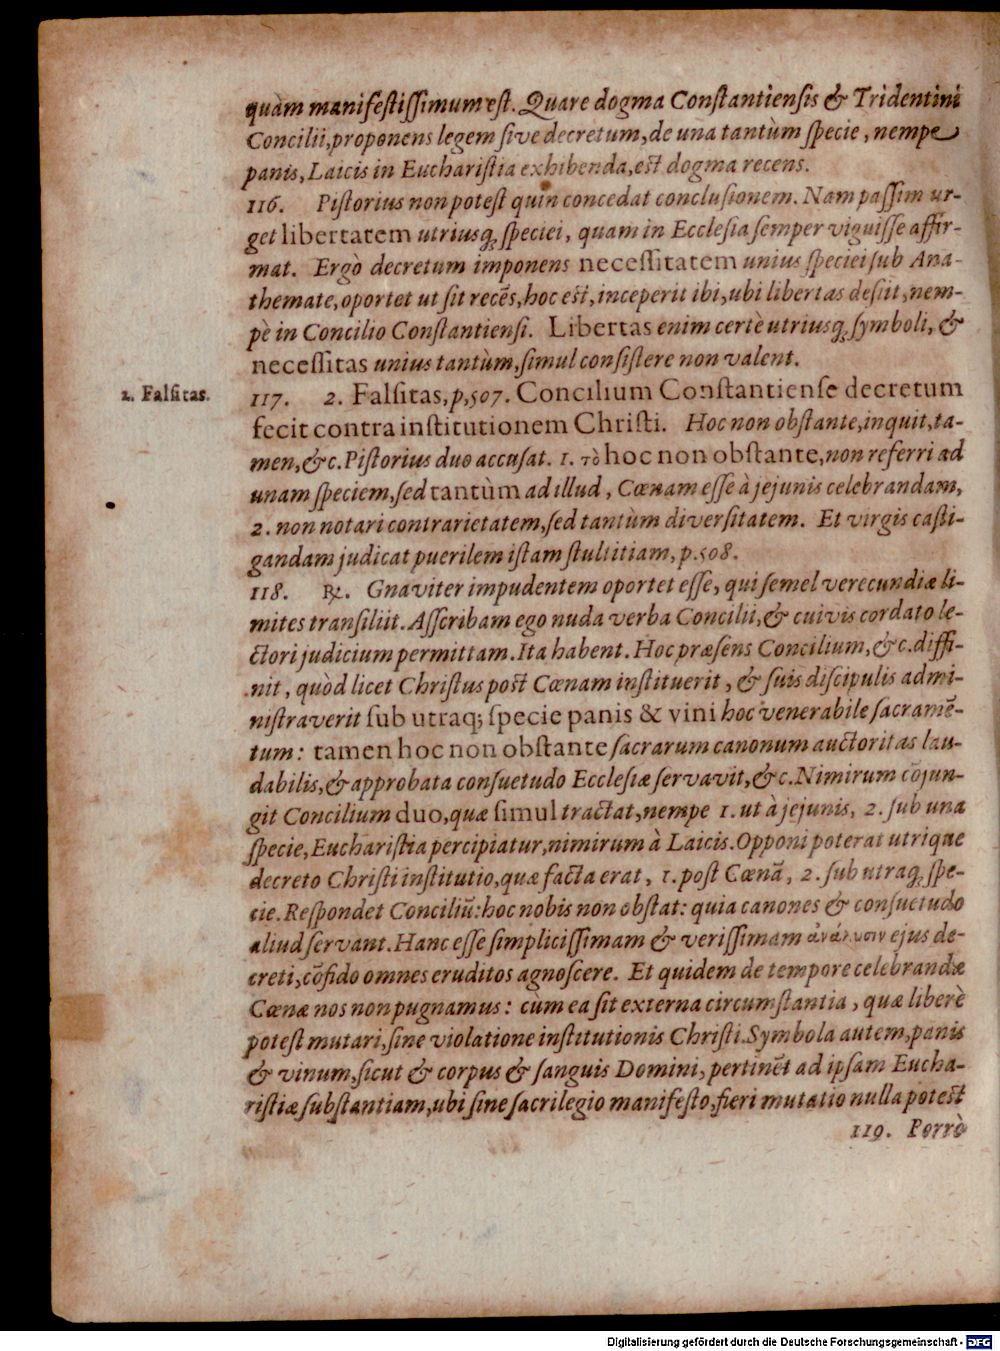 quàm manifestissimum est. Quare dogma Constantiensis & Tridentini
Concilii, proponens legem sive decretum, de una tantùm specie, nempe
panis, Laicis in Eucharistia exhibenda, est dogma recens.
116. Pistorius non potest quin concedat conclusionem. Nam passim ur-
get libertatem utriusq; speciei, quam in Ecclesia semper viguisse affir-
mat. Ergò decretum imponens necessitatem unius speciei sub Ana-
themate, oportet ut sit recẽs, hoc est, inceperit ibi, ubi libertas desiit, nem-
pè in Concilio Constantiensi. Libertas enim certè utriusq; symboli, &
necessitas unius tantùm, simul consistere non valent.
2. Falsitas.
117. 2. Falsitas, p. 507. Concilium Constantiense decretum
fecit contra institutionem Christi. Hoc non obstante, inquit, ta-
men, &c. Pistorius duo accusat. 1. τὸ hoc non obstante, non referri ad
unam speciem, sed tantùm ad illud, Cœnam esse à jejunis celebrandam,
2. non notari contrarietatem, sed tantùm diversitatem. Et virgis casti-
gandam judicat puerilem istam stultitiam, p. 508.
118. ℞. Gnaviter impudentem oportet esse, qui semel verecundiæ li-
mites transiliit. Asscribam ego nuda verba Concilii, & cuivis cordato le-
ctori judicium permittam. Ita habent. Hoc præsens Concilium, &c. diffi-
nit, quòd licet Christus post Cœnam instituerit, & suis discipulis admi-
nistraverit sub utraq; specie panis & vini hoc venerabile sacramẽ-
tum: tamen hoc non obstante sacrarum canonum auctoritas lau-
dabilis, & approbata consuetudo Ecclesiæ servavit, &c. Nimirum cõjun-
git Concilium duo, quæ simul tractat, nempe 1. ut à jejunis, 2. sub una
specie, Eucharistia percipiatur, nimirum à Laicis. Opponi poterat utrique
decreto Christi institutio, quæ facta erat, 1. post Cœnã, 2. sub utraq; spe-
cie. Respondet Conciliũ: hoc nobis non obstat: quia canones & consuetudo
aliud servant. Hanc esse simplicissimam & verissimam ἀνάλυσιν ejus de-
creti, cõfido omnes eruditos agnoscere. Et quidem de tempore celebrandæ
Cœnæ nos non pugnamus: cum ea sit externa circumstantia, quæ liberè
potest mutari, sine violatione institutionis Christi. Symbola autem, panis
& vinum, sicut & corpus & sanguis Domini, pertinẽt ad ipsam Eucha-
ristiæ substantiam, ubi sine sacrilegio manifesto, fieri mutatio nulla potest
119. Porrò
Digitalisierung gefördert durch die Deutsche Forschungsgemeinschaft - DFG